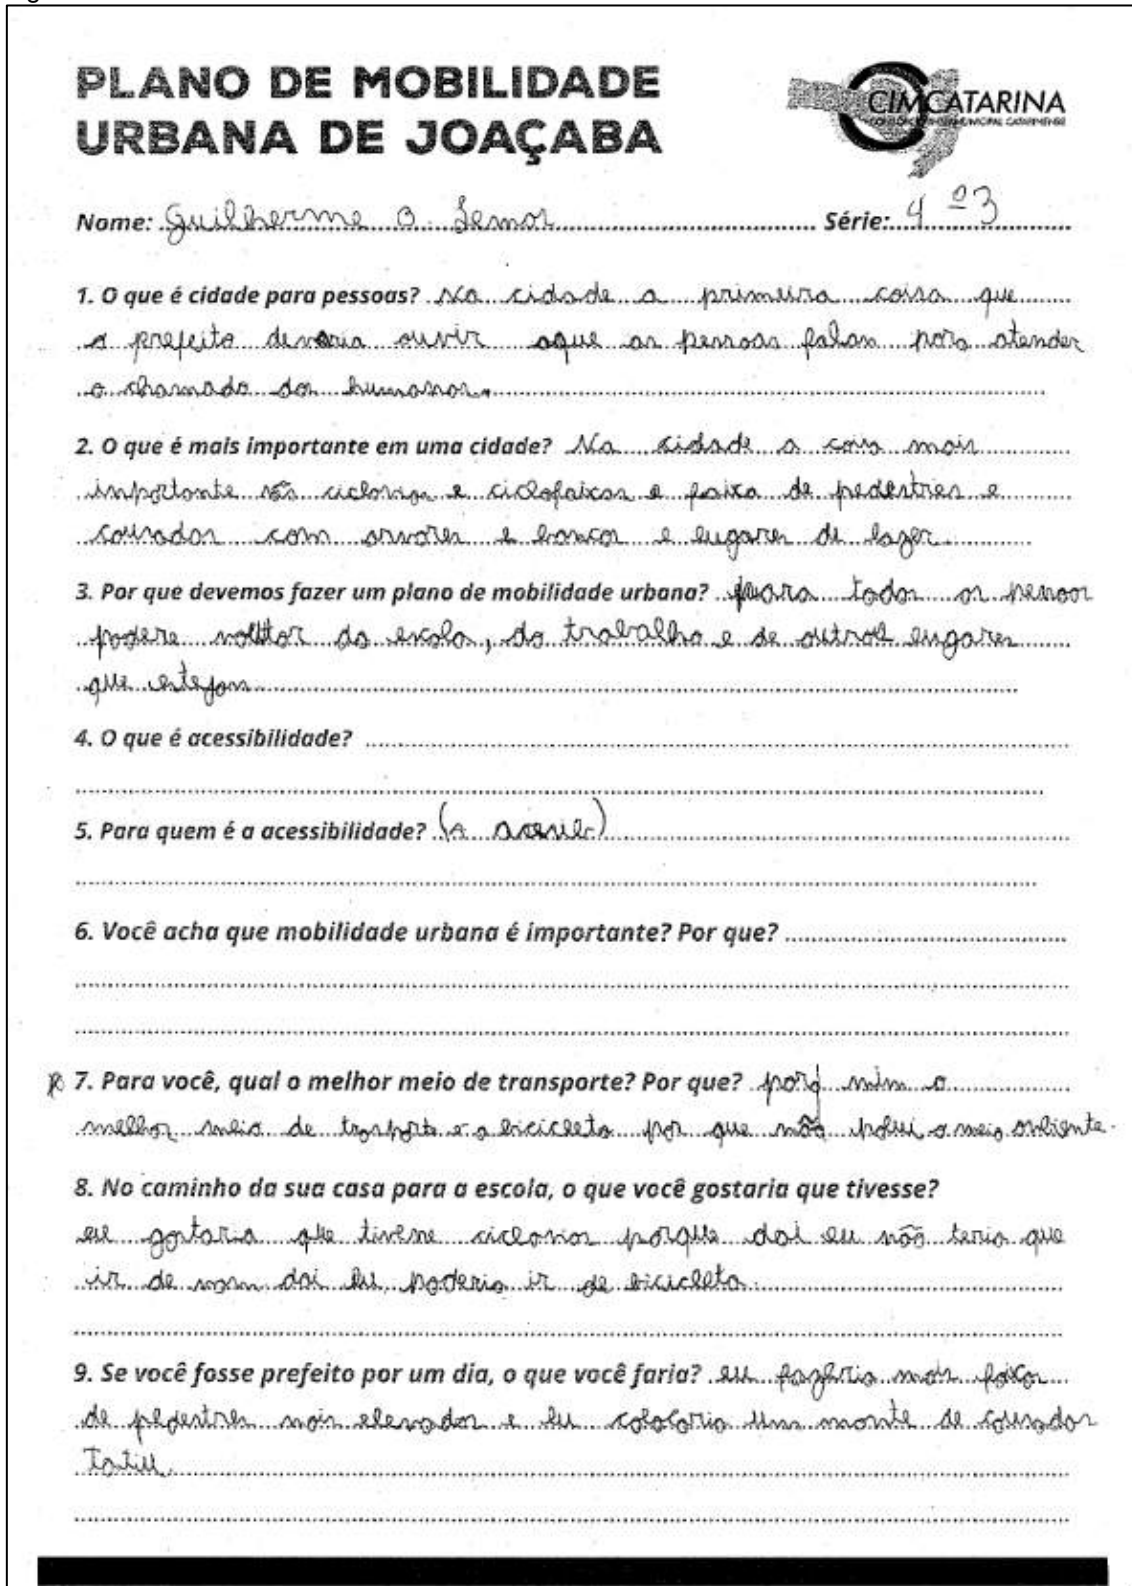 PLANO DE MOBILIDADE
URBANA DE JOAÇABA
CIMCATARINA
CONSÓRCIO INTERMUNICIPAL CATARINENSE
Nome: Guilherme O. Lemos Série: 4º3
1. O que é cidade para pessoas? Na cidade a primeira coisa que
o prefeito deveria ouvir aque as pessoas falam para atender
o chamado dos humanos.
2. O que é mais importante em uma cidade? Na cidade a coisa mais
importante são ciclovias e ciclofaixas e faixa de pedestries e
com arvores e bancos e lugares de lazer
3. Por que devemos fazer um plano de mobilidade urbana? para todas as pessoas
podere voltar da escola, do trabalho e de lugares
que estejam
4. O que é acessibilidade?
5. Para quem é a acessibilidade? (A
6. Você acha que mobilidade urbana é importante? Por que?
7. Para você, qual o melhor meio de transporte? Por que? para mim o
melhor meio de e a bicicleta por que não polui o meio
8. No caminho da sua casa para a escola, o que você gostaria que tivesse?
eu gostaria que tivesse ciclovias porque dai eu não teria que
ir de dai eu poderia ir de bicicleta.
9. Se você fosse prefeito por um dia, o que você faria? eu fazeria mais faixas
de pedestres mais elevadas e eu colocaria um monte de